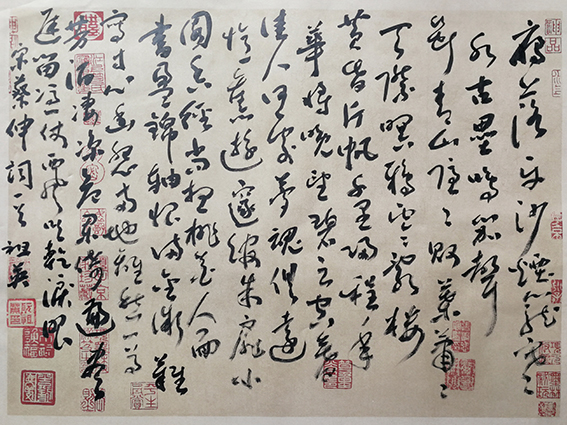 雁落平沙煙籠寒
水古壘鳴笳聲
斷青山隱〻敗葉蕭〻
天際暝鴉零亂樓上
黄昏片帆千里歸程年
華將晚望碧雲空暮
佳人何處夢魂俱遠
憶舊遊邃館朱扉小
園香徑尚想桃花人面
書盈錦軸恨滿金徽難
寫寸心幽怨兩地離愁一尊
芳酒淒涼危欄倚遍盡
遲留馮仗西風吹乾淚眼
宋蔡伸詞 祖英